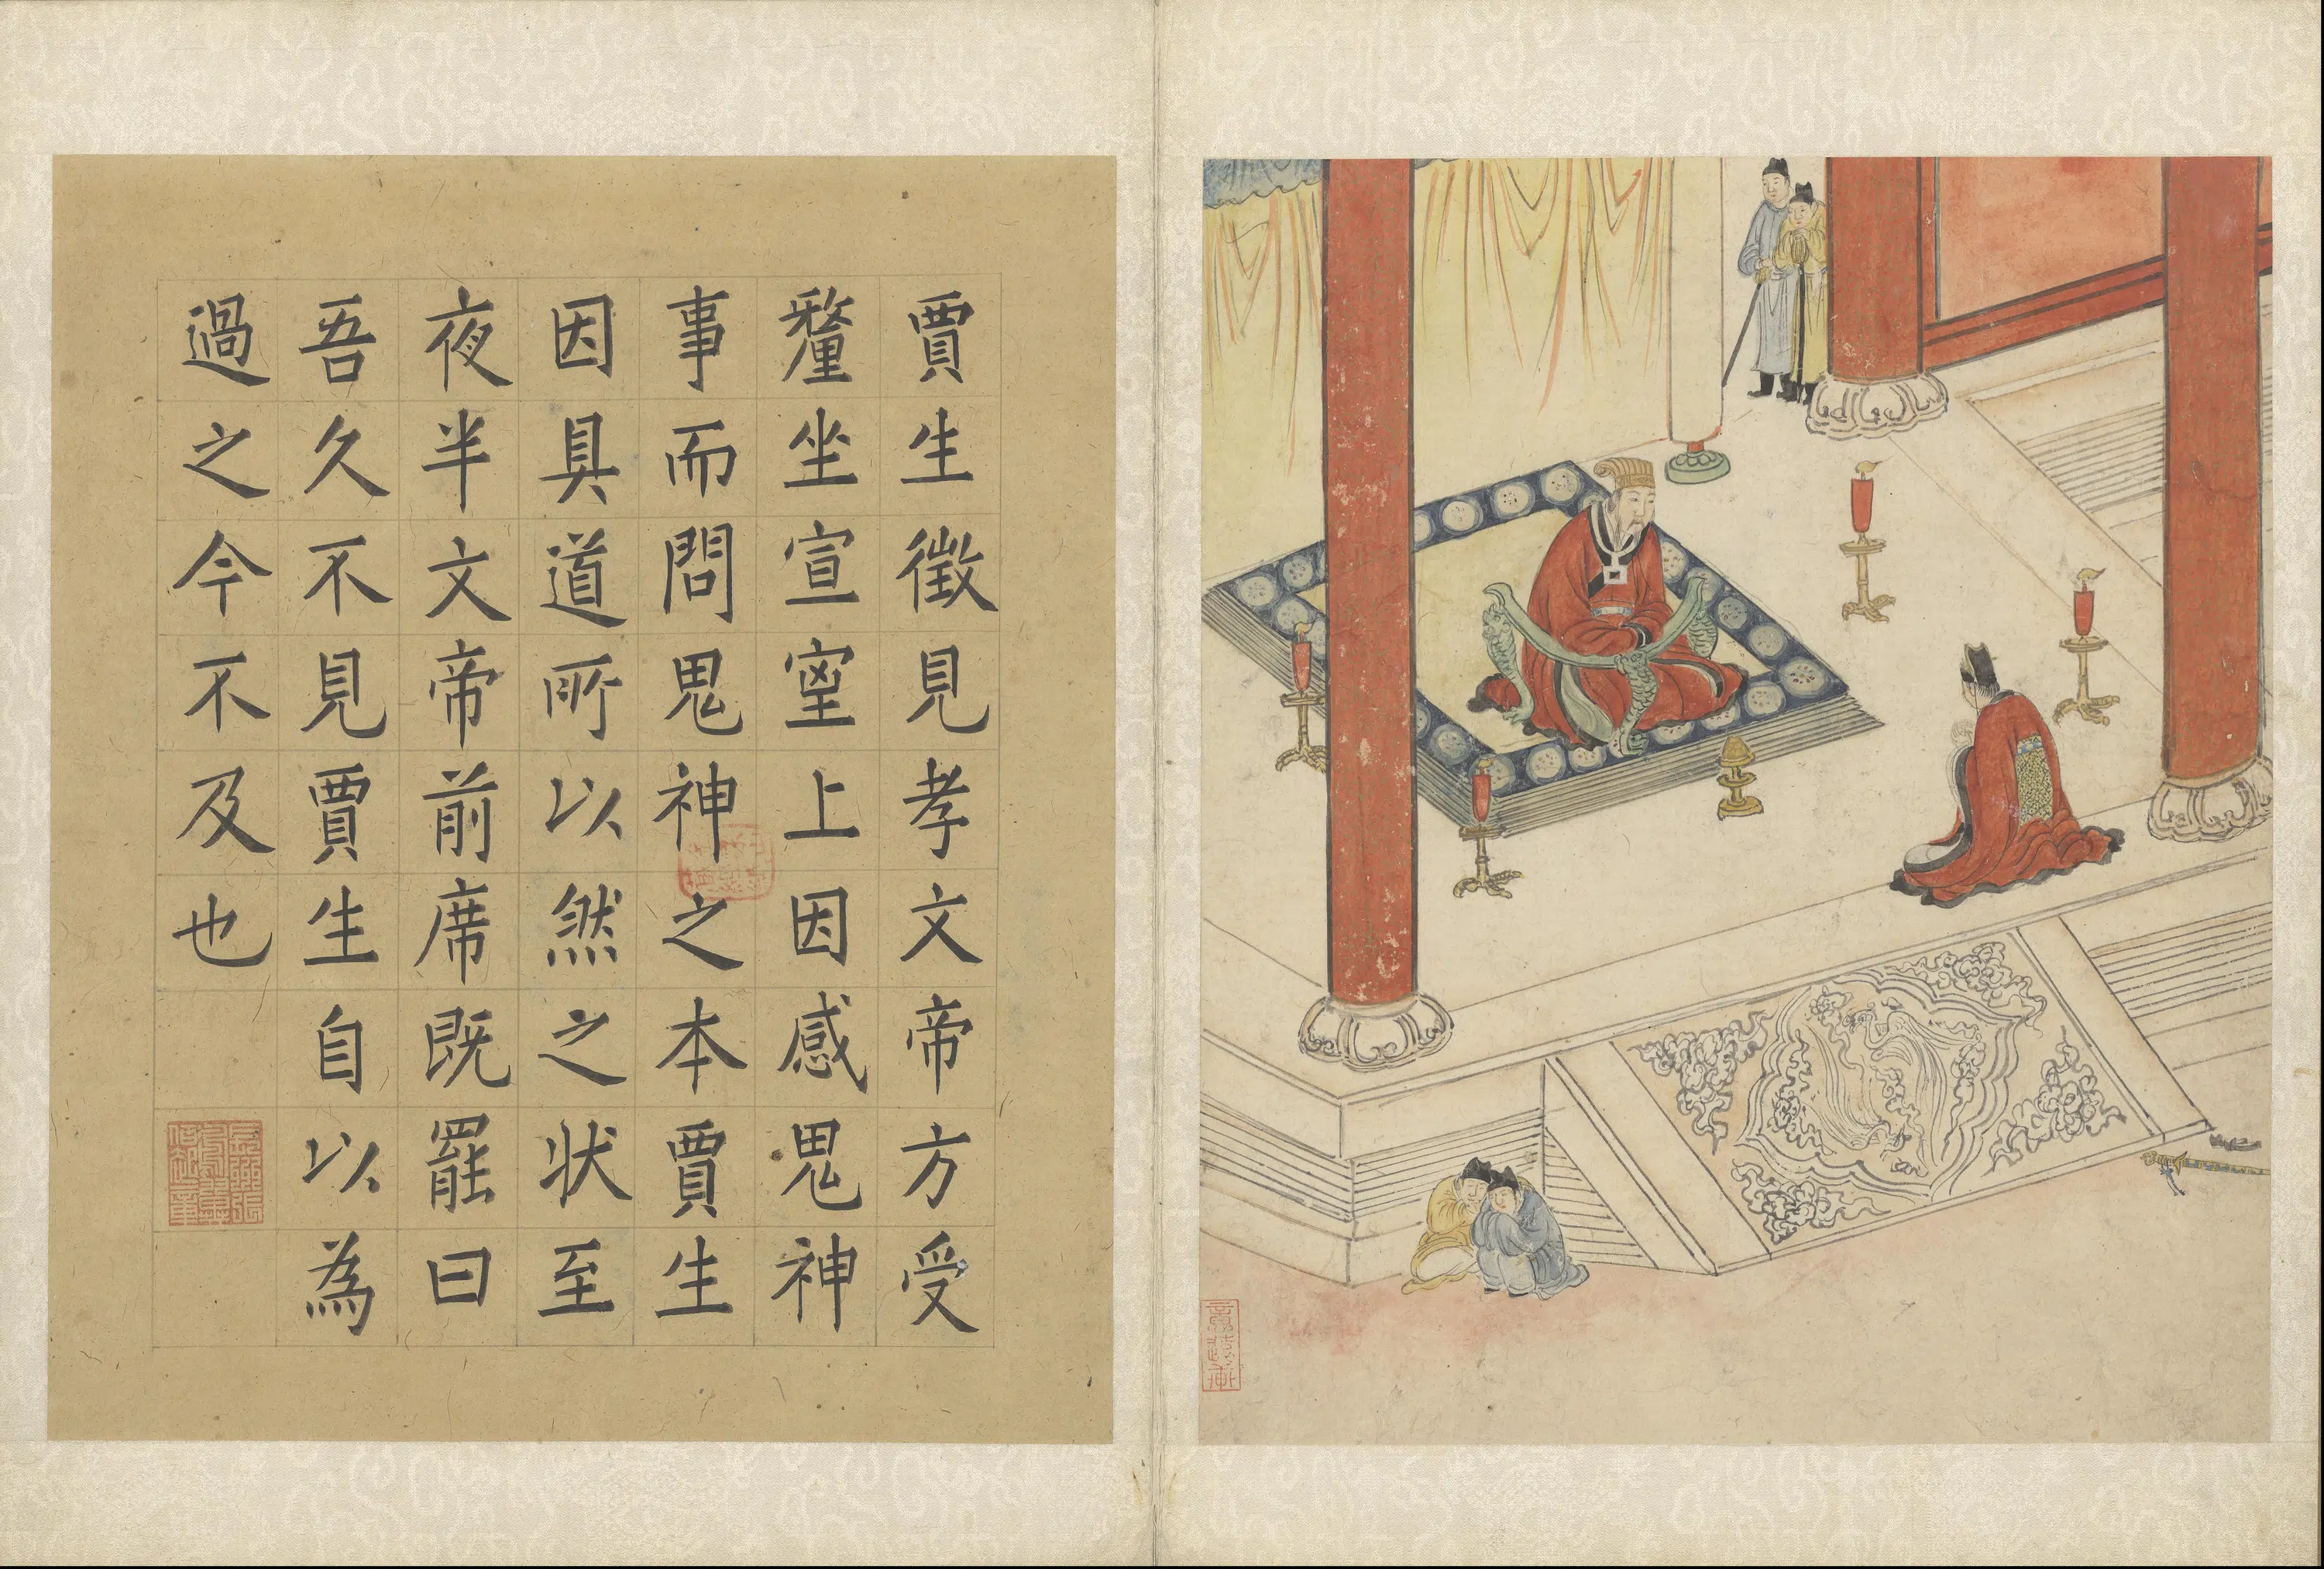 賈生徵見孝文帝方受
釐坐宣室上因感鬼神
事而問鬼神之本賈生
因具道所以然之状至
夜半文帝前席既罷曰
吾久不見賈生自以為
過之今不及也